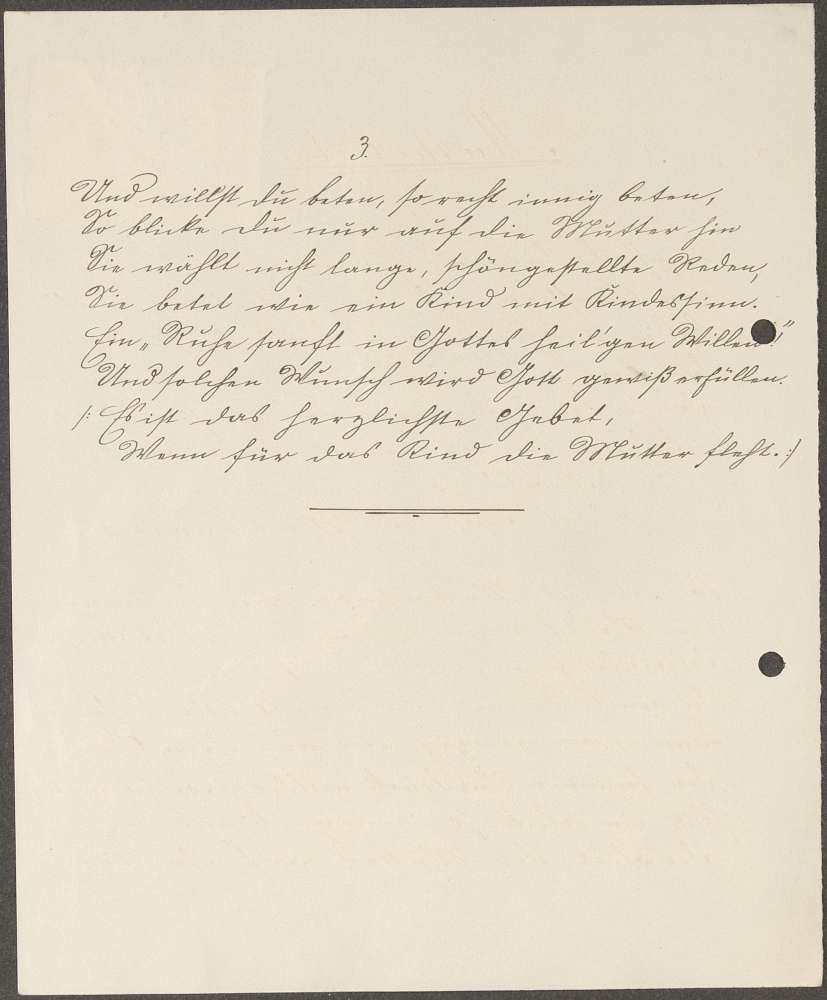 3.
Und willst du beten, so recht innig beten,
So blicke du nur auf die Mutter hin
Sie wählt nicht lange, schöngestellte Reden,
Sie betet wie ein Kind mit Kindessinn.
Ein „Ruhe sanft in Gottes heil'gen Willen!"
Und solchen Wunsch wird Gott gewiß erfüllen.
/: Es ist das herzlichste Gebet,
Wenn für das Kind die Mutter fleht. :/